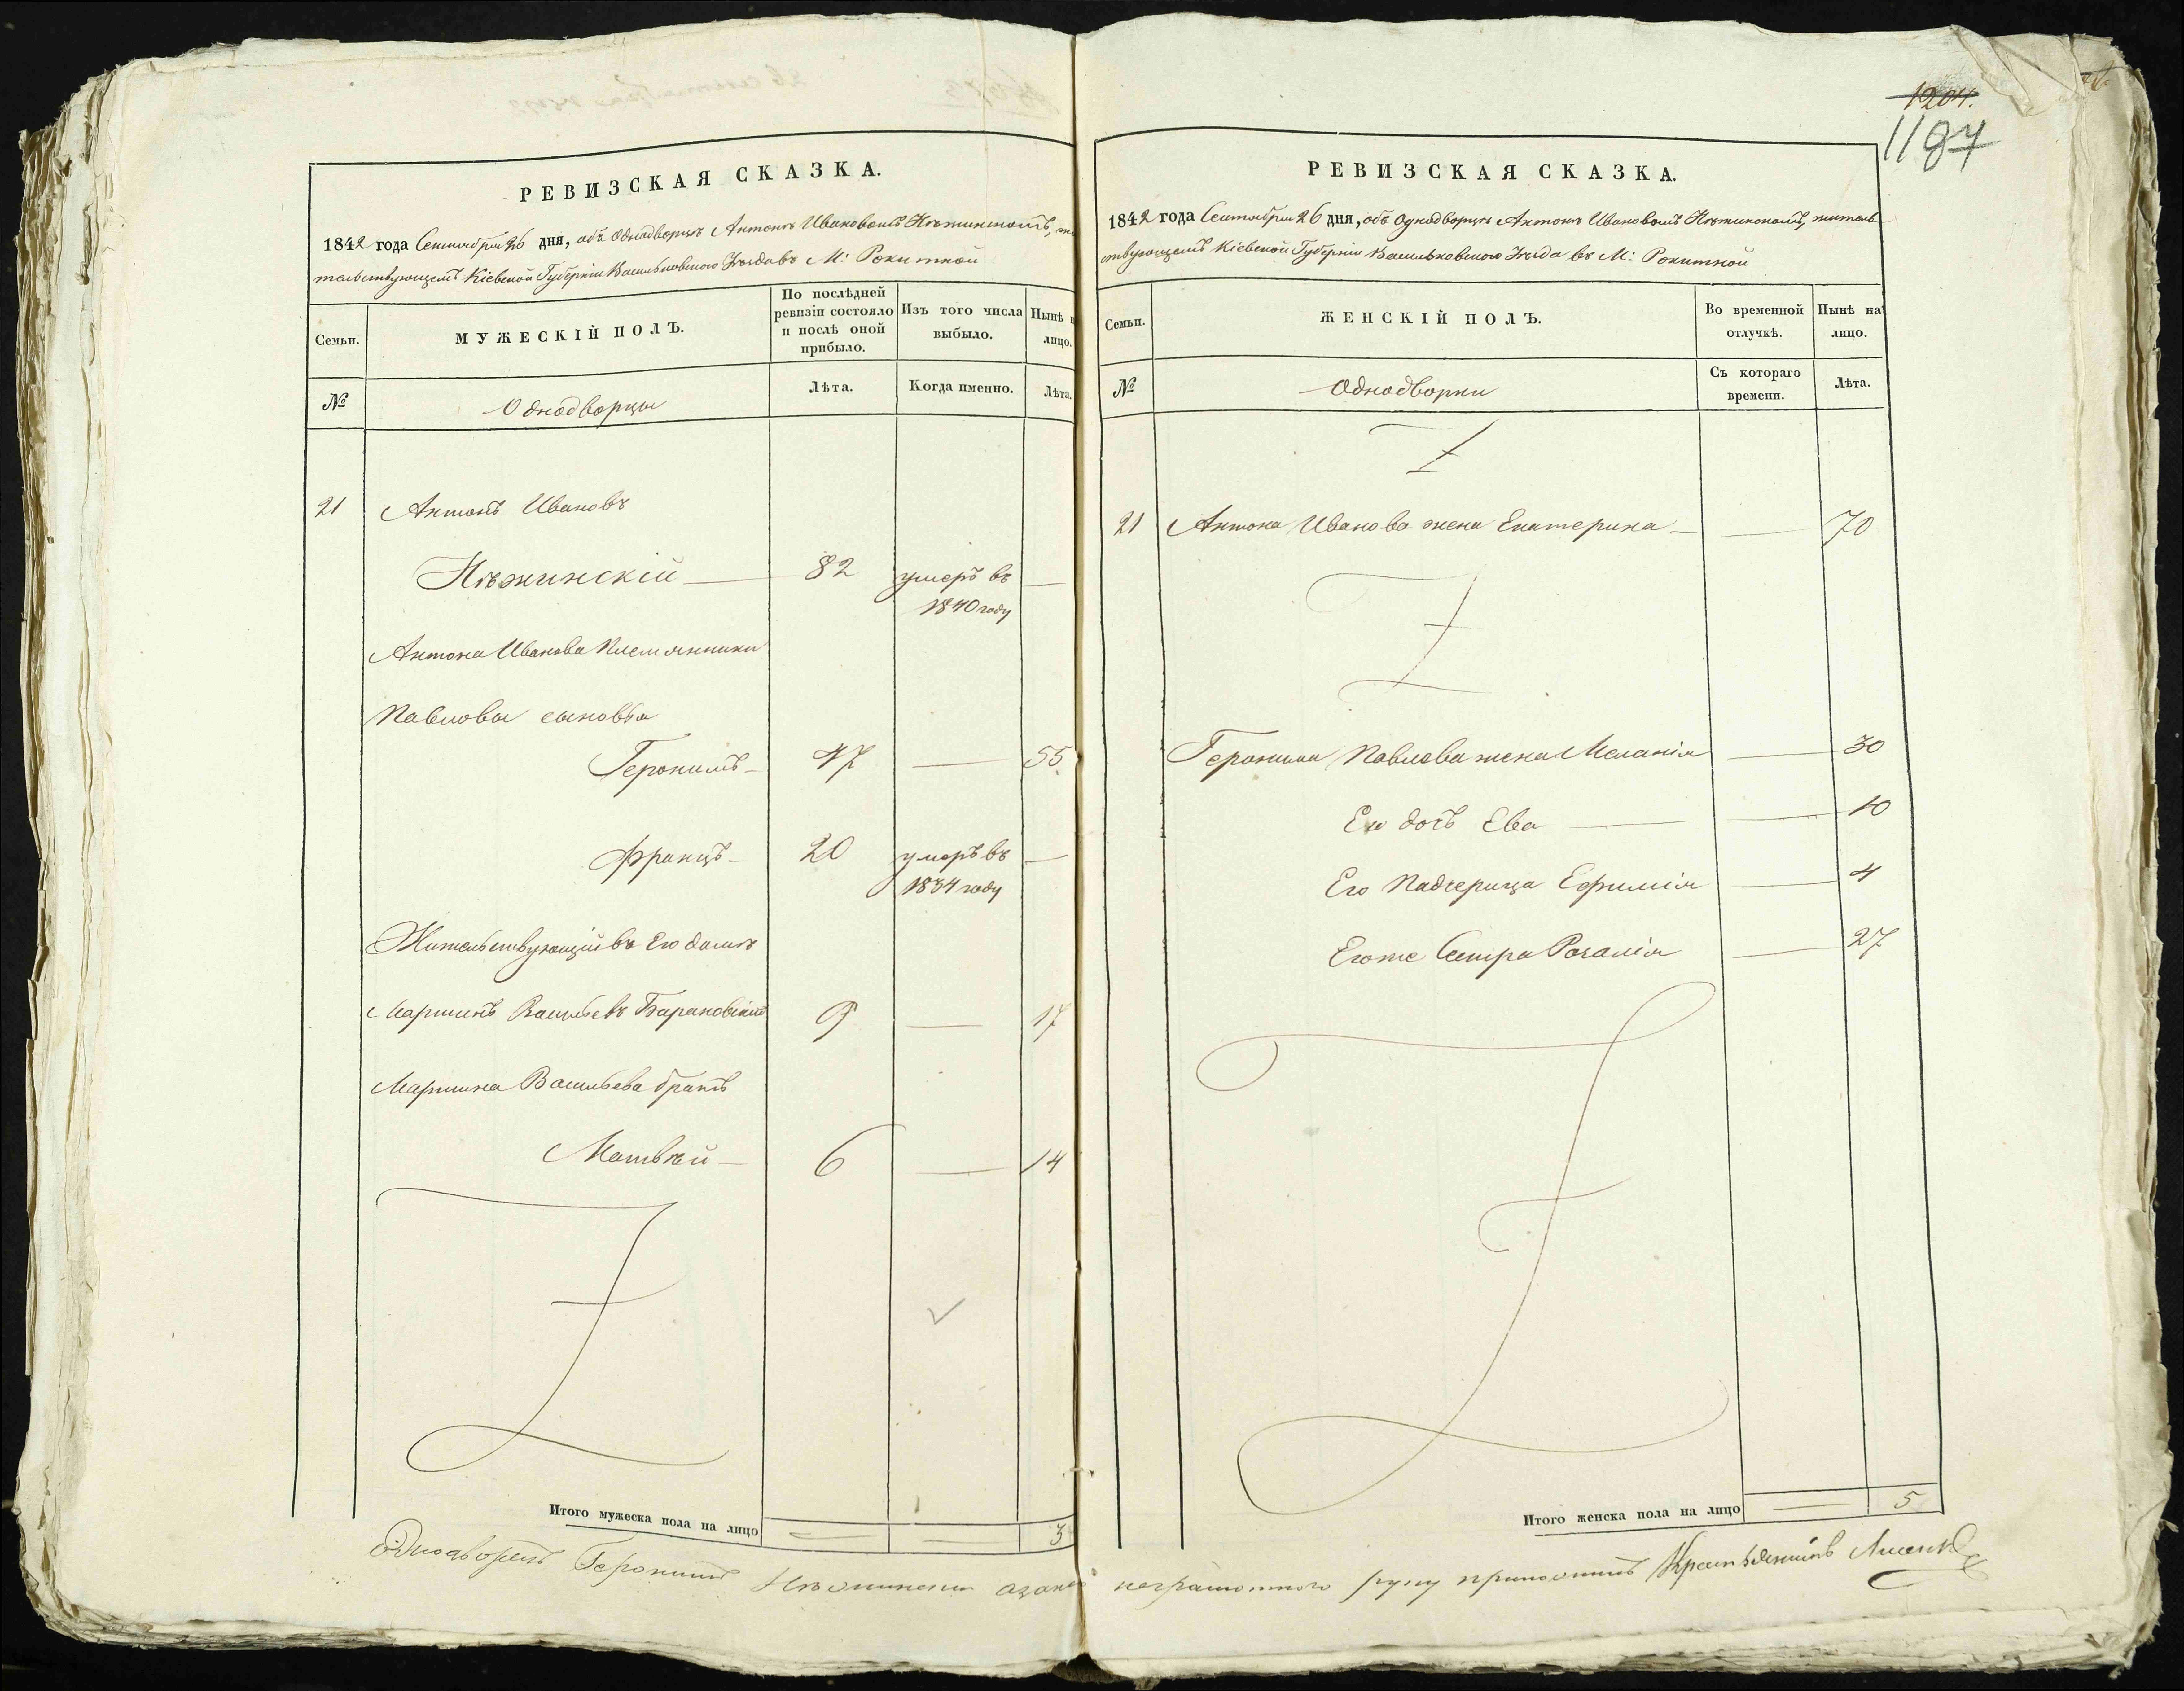 РЕВИЗСКАЯ СКАЗКА.
1842 года Сентября 26 дня, объ Однодворцѣ Антонѣ Ивановомъ Нѣжинскомъ, жи
тельствующемъ Кіевской Губерніи Васильковскаго Уѣзда въ М: Рокитной
Семьи.
МУЖЕСКІЙ ПОЛЪ.
По послѣдней ревизіи состояло и послѣ оной прибыло.
Изъ того числа выбыло.
Нынѣ на лицо.
№
Однодворцы
Лѣта.
Когда именно.
Лѣта.
21 Антонъ Ивановъ
Нѣжинскій — 82 умеръ въ —
1840 году
Антона Иванова Племянники
Павловы сыновья
Геронимъ — 47 — 55
Францъ — 20 умеръ въ —
1834 году
Жительствующій въ Его домѣ
Мартинъ Васильевъ Барановскій 9 — 17
Мартина Васильева братъ
Матвѣй — 6 — 14
Итого мужеска пола на лицо 3
1204.
1187
РЕВИЗСКАЯ СКАЗКА.
1842 года Сентября 26 дня, объ Однодворцѣ Антонѣ Ивановомъ Нѣжинскомъ, житель
ствующемъ Кіевской Губерніи Васильковскаго Уѣзда въ М: Рокитной
Семьи.
ЖЕНСКІЙ ПОЛЪ.
Во временной отлучкѣ.
Нынѣ на лицо.
№
Однодворки
Съ котораго времени.
Лѣта.
21 Антона Иванова жена Екатерина — — 70
Геронима Павлова жена Меланія — 30
Его дочь Ева — — 10
Его Падчерица Ефимія — 4
Егоже Сестра Розалія — 27
Итого женска пола на лицо 5
Однодворецъ Геронимъ Нѣжинскій а за него неграмотного руку приложилъ